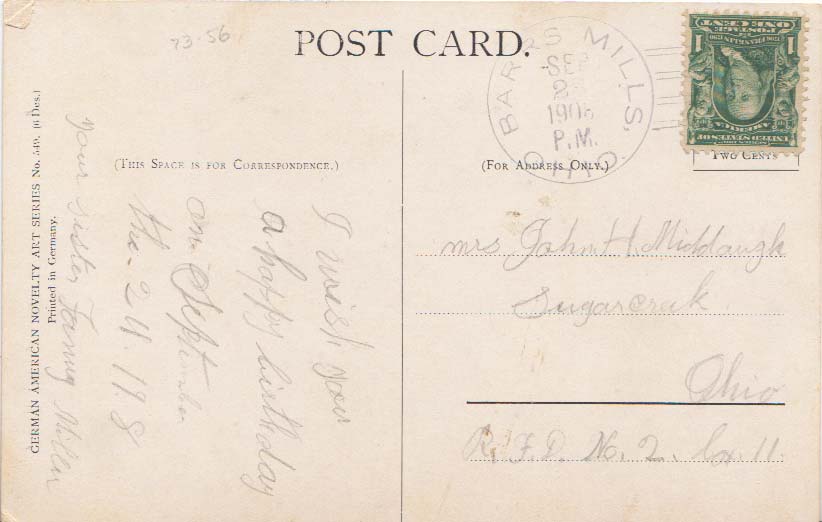 73-56
POST CARD.
BARRS MILLS, OHIO
SEP
1908
P.M.
POSTAGE
ONE CENT
1 1
AMERICA
UNITED STATES OF
TWO CENTS
(THIS SPACE IS FOR CORRESPONDENCE.)
(FOR ADDRESS ONLY.)
GERMAN AMERICAN NOVELTY ART SERIES No. 549. (6 Des.)
Printed in Germany.
I wish you
a happy birthday
on September
the 24. 19.8
your sister Fanny Miller
Mrs John H. Middaugh
Sugarcrak
Ohio
R. F. D. No. 2. bx. 11.